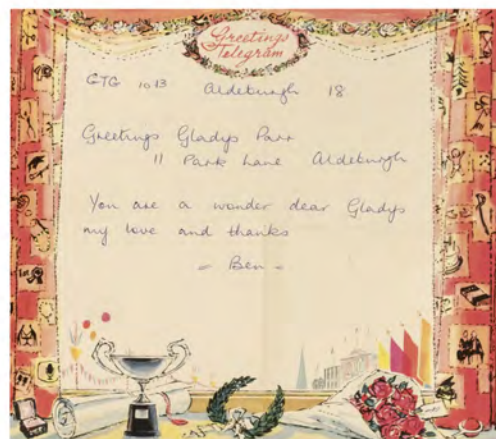 Greetings
Telegram
GTG 1013 Aldeburgh 18
Greetings Gladys Parr
11 Park Lane Aldeburgh
You are a wonder dear Gladys
my love and thanks
= Ben =